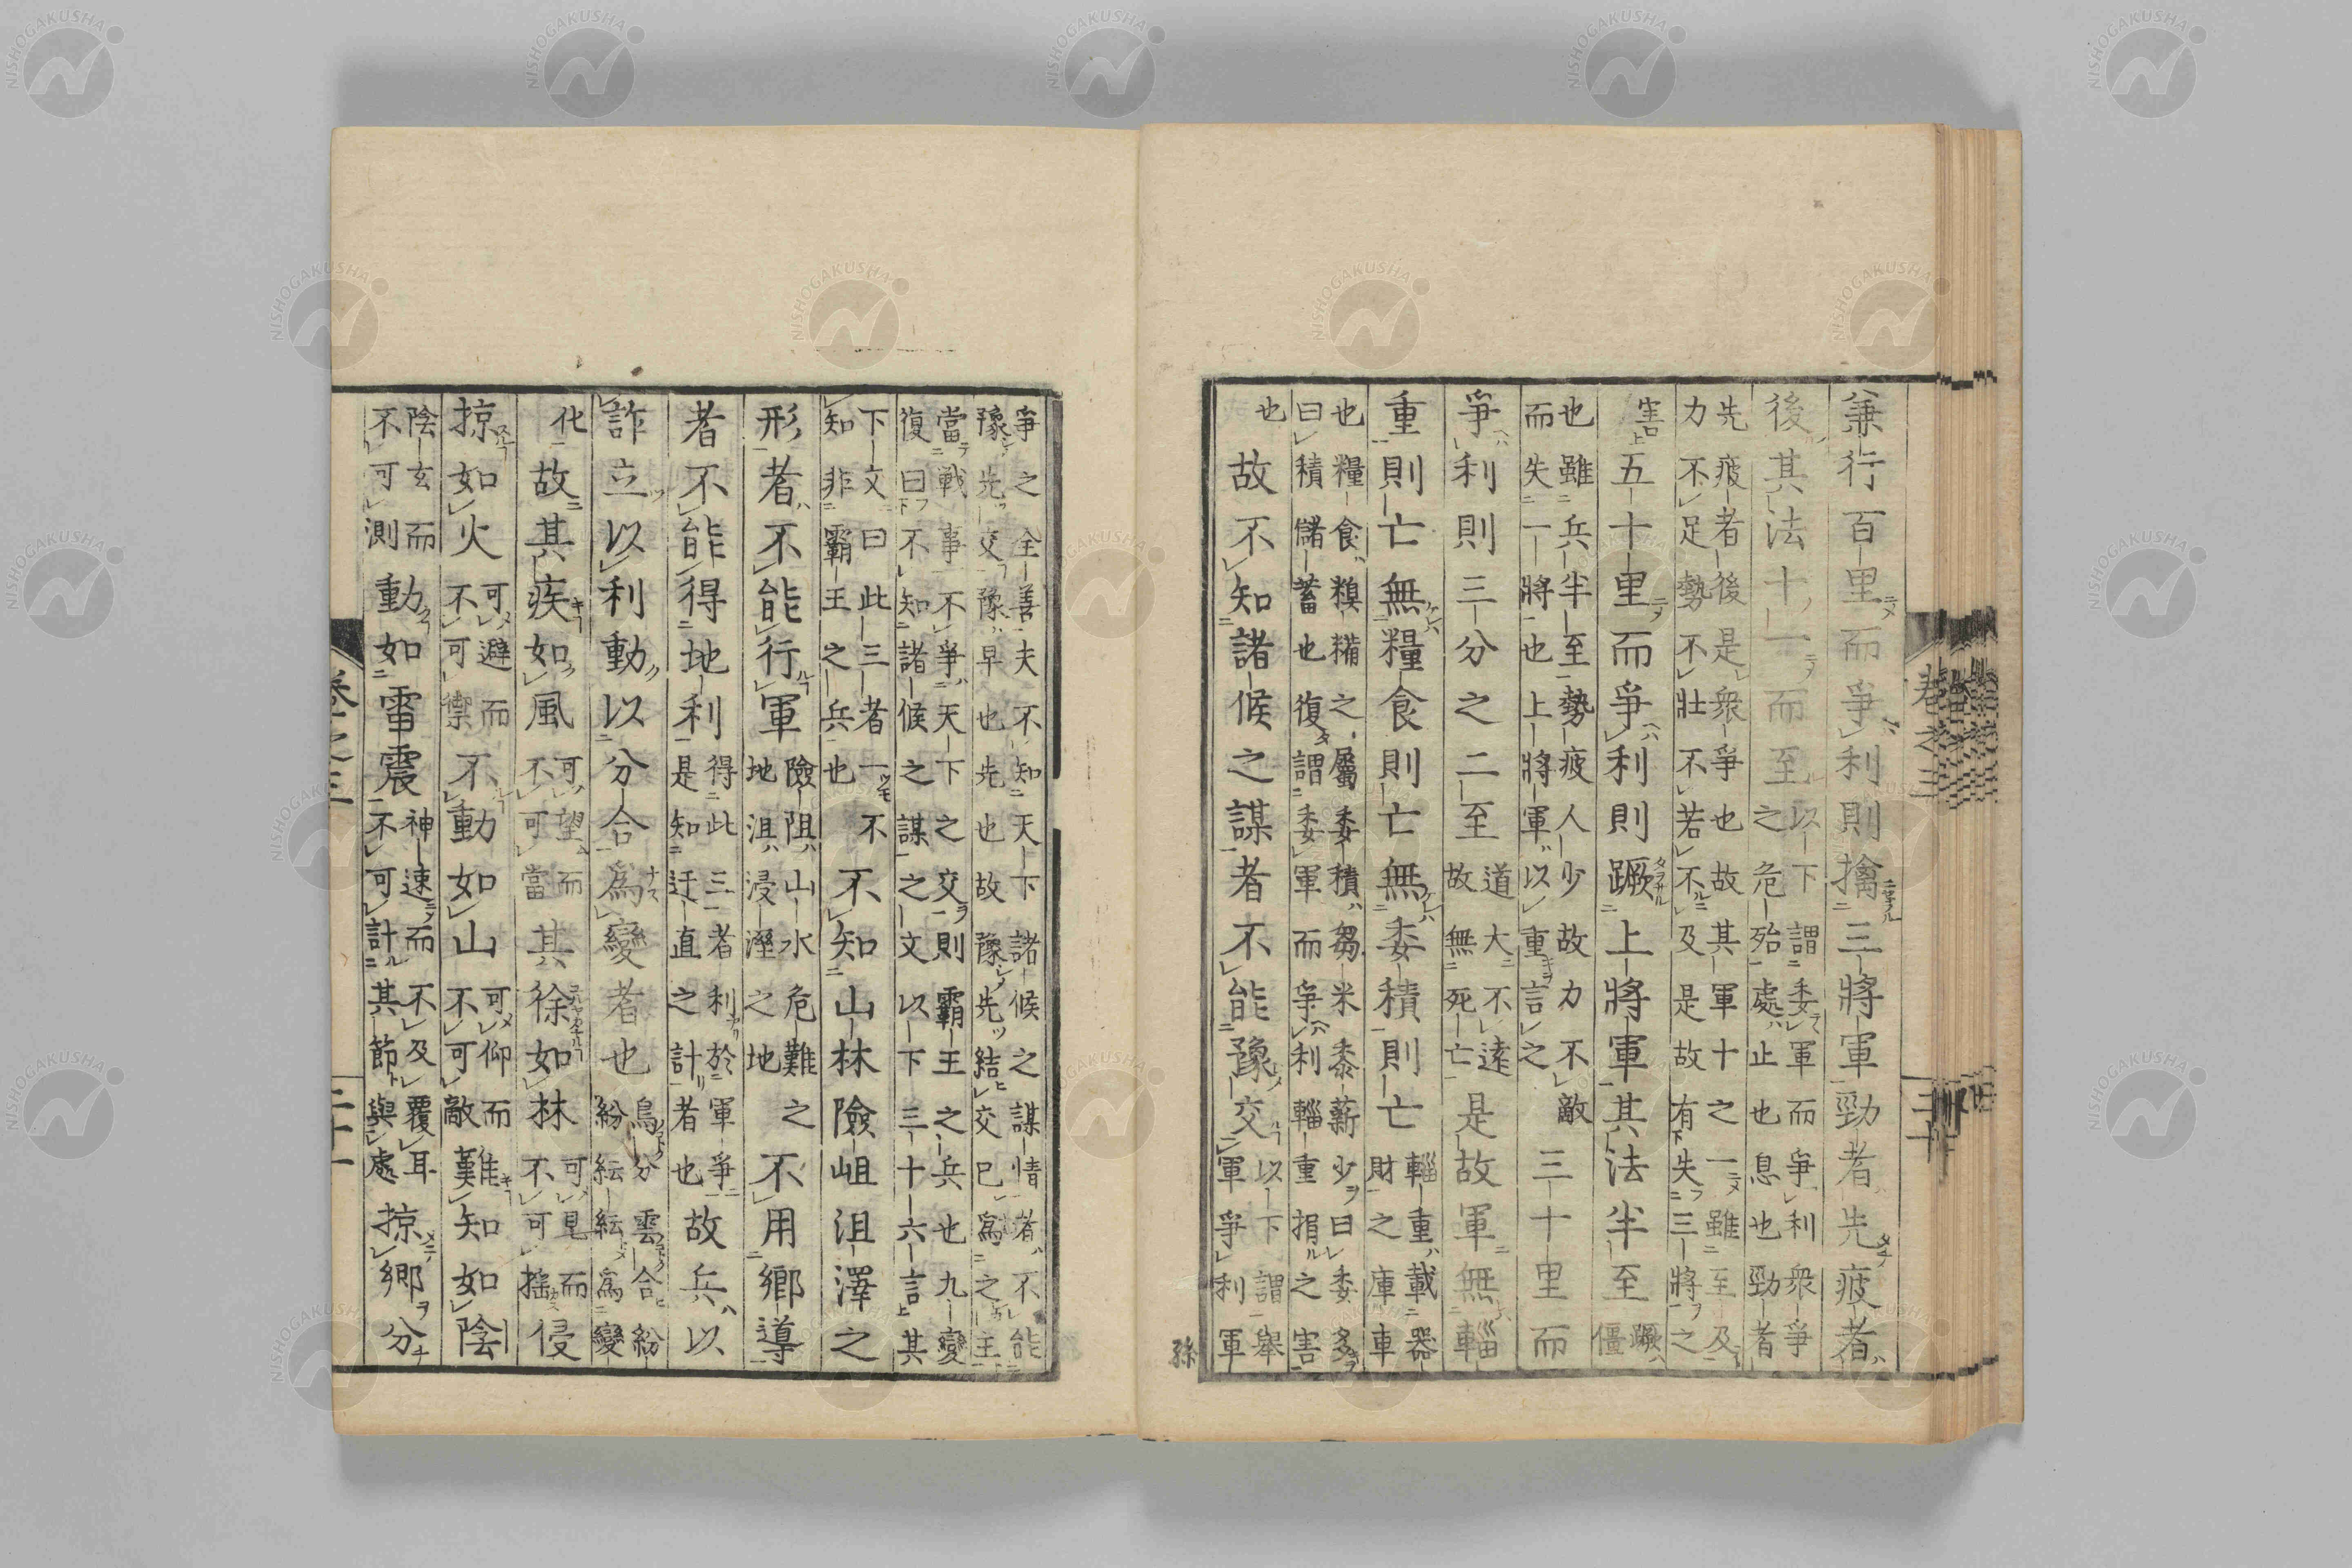 兼行百里而爭利則擒三將軍勁者先疲者
後其法十一而至以下謂委軍而爭利衆爭
之危殆處止也息也勁者
先疲者後是衆爭也故其軍十之一雖至及
力不足勢不壯不若不及是故有失三將之
害五十里而爭利則蹶上將軍其法半至蹶
僵
也雖兵半至勢疲人少故力不敵
而失一將也上將軍以重言之三十里而
爭利則三分之二至道大不遠
故無死亡是故軍無輜
重則亡無糧食則亡無委積則亡輜重載器
財之庫車
也糧食糗糒之屬委積芻米黍薪少曰委多
曰積儲蓄也復謂委軍而爭利輜重捐之害
也故不知諸侯之謀者不能豫交以下謂舉
軍爭利軍
爭之全善夫不知天下諸侯之謀情者不能
豫先交豫早也先也故豫先結交已爲之王
當戰事不爭天下之交則霸王之兵也九變
復曰不知諸侯之謀之文以下三十六言其
下文曰此三者一不
知非霸王之兵也不知山林險岨沮澤之
形者不能行軍險阻山水危難之
地沮浸溼之地不用鄉導
者不能得地利得此三者利於軍爭
是知迂直之計者也故兵以
詐立以利動以分合爲變者也烏分雲合紛
紛紜紜爲變
化故其疾如風可望而
不可當其徐如林可見而
不可搖侵
掠如火可避而
不可禦不動如山可仰而
不可敵難知如陰
陰玄而
不可測動如雷震神速而不及覆耳
不可計其節與處掠鄉分
卷之三
三十
卷之三
三十一
孫
NISHOGAKUSHA